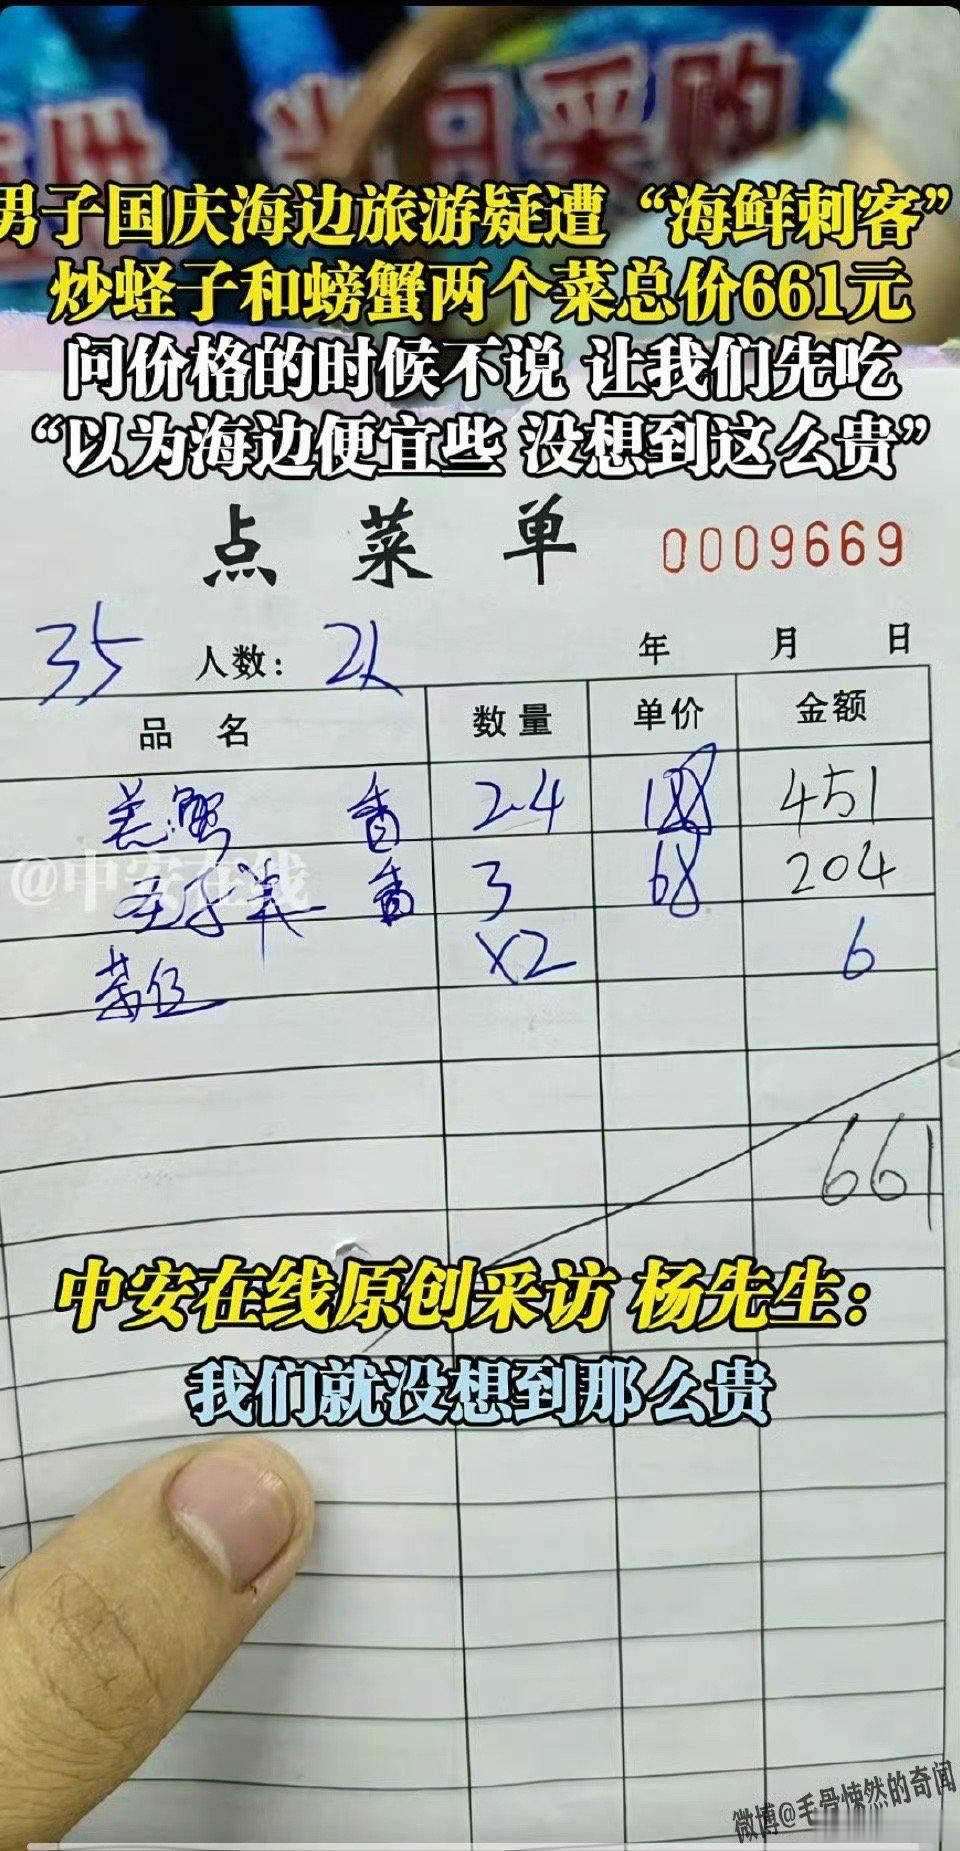 采购
男子国庆海边旅游疑遭“海鲜刺客”
炒蛏子和螃蟹两个菜总价661元
问价格的时候不说 让我们先吃
“以为海边便宜些 没想到这么贵”
点菜单 0009669
35 人数: 2人 年 月 日
品名 数量 单价 金额
蟹 2.4 188 451
3 68 204
茶位 X2 6
@中安在线
661
中安在线原创采访 杨先生:
我们就没想到那么贵
微博@毛骨悚然的奇闻